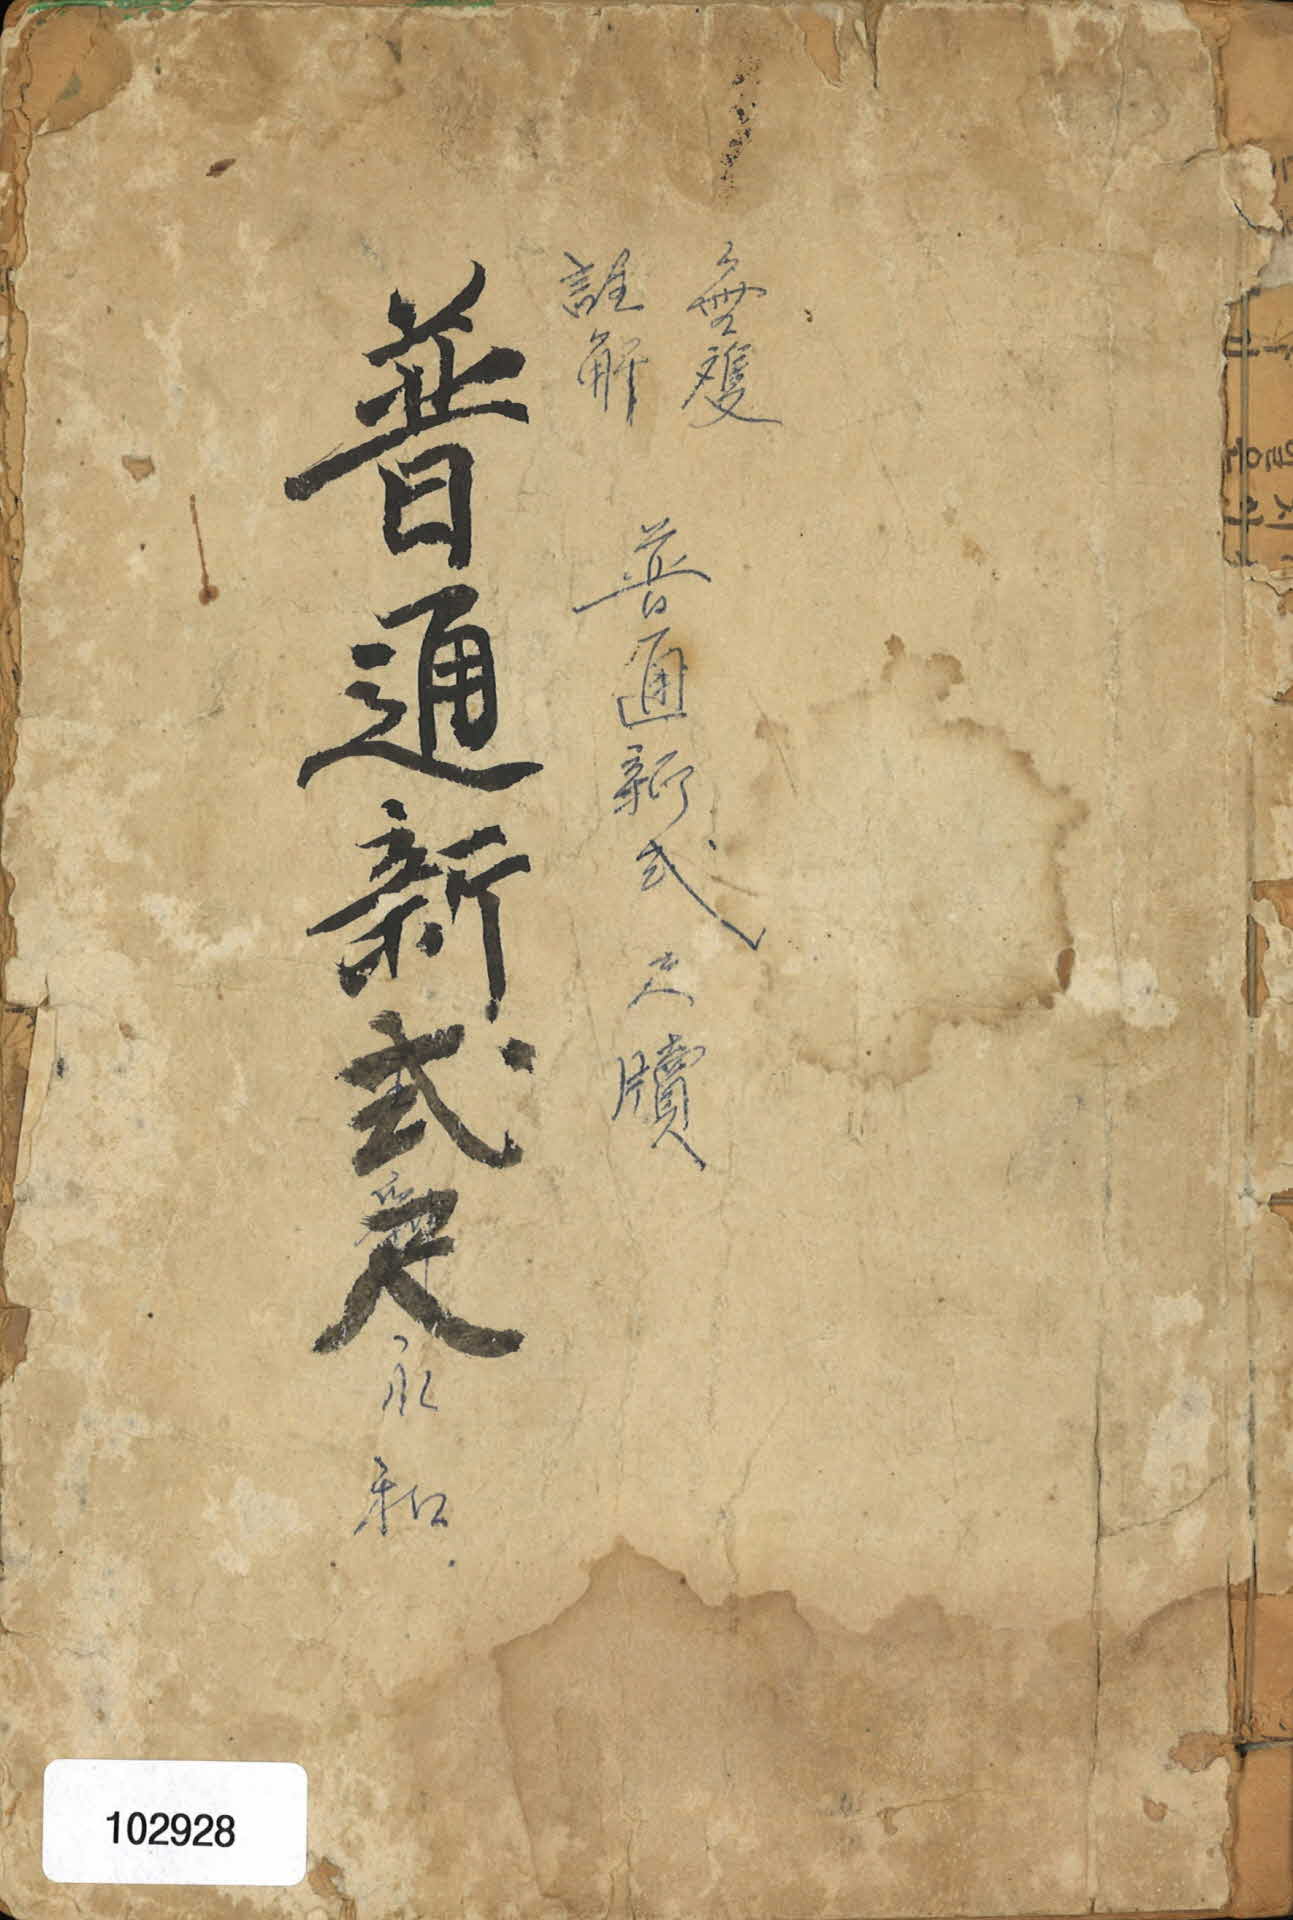 無雙
註解
普通新式尺牘
普通新式尺
永和
102928